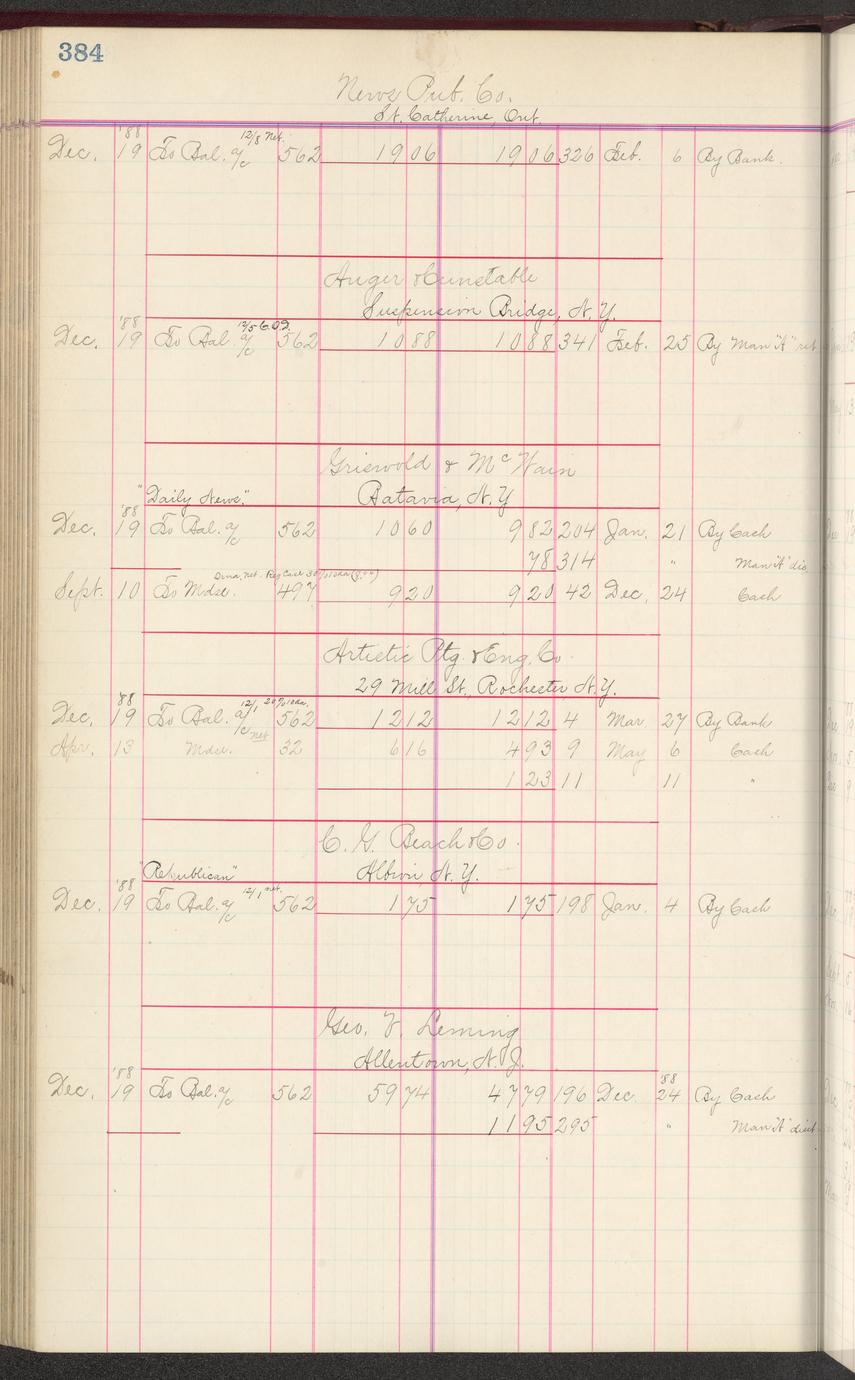 384
News Pub. Co.
St. Catherine, Ont.
'88 12/8 Net.
Dec. 19 To Bal. a/c 562 19 06 19 06 326 Feb. 6 By Bank.
Auger & Cunstable
Suspension Bridge, N.Y.
'88 12/5 C.O.D.
Dec. 19 To Bal. a/c 562 10 88 10 88 341 Feb. 25 By Man "A" ret
Griswold & McWain
"Daily News." Batavia, N.Y
'88
Dec. 19 To Bal. a/c 562 10 60 9 82 204 Jan. 21 By Cash
78 314 " Man "A" dis
Net. Reg Case
Sept. 10 To Mdse. 497 9 20 9 20 42 Dec. 24 Cash
Artistic Ptg. & Eng. Co.
29 Mill St., Rochester N.Y.
'88 12/1 20% 10da.
Dec. 19 To Bal. a/c 562 12 12 12 12 4 Mar 27 By Bank
net
Apr. 13 Mdse. 32 6 16 4 93 9 May 6 Cash
1 23 11 11 "
C. G. Beach & Co.
"Republican" Albion, N.Y.
'88 12/1 net.
Dec. 19 To Bal. a/c 562 1 75 1 75 198 Jan. 4 By Cash
Geo. F. Leming
Allentown, N.J.
'88 '88
Dec. 19 To Bal. a/c 562 59 74 47 79 196 Dec. 24 By Cash
11 95 295 " Man "A" disct